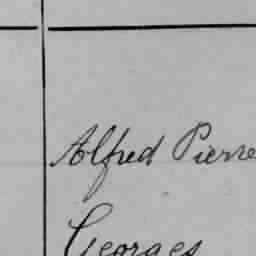 Alfred Pierre
Georges